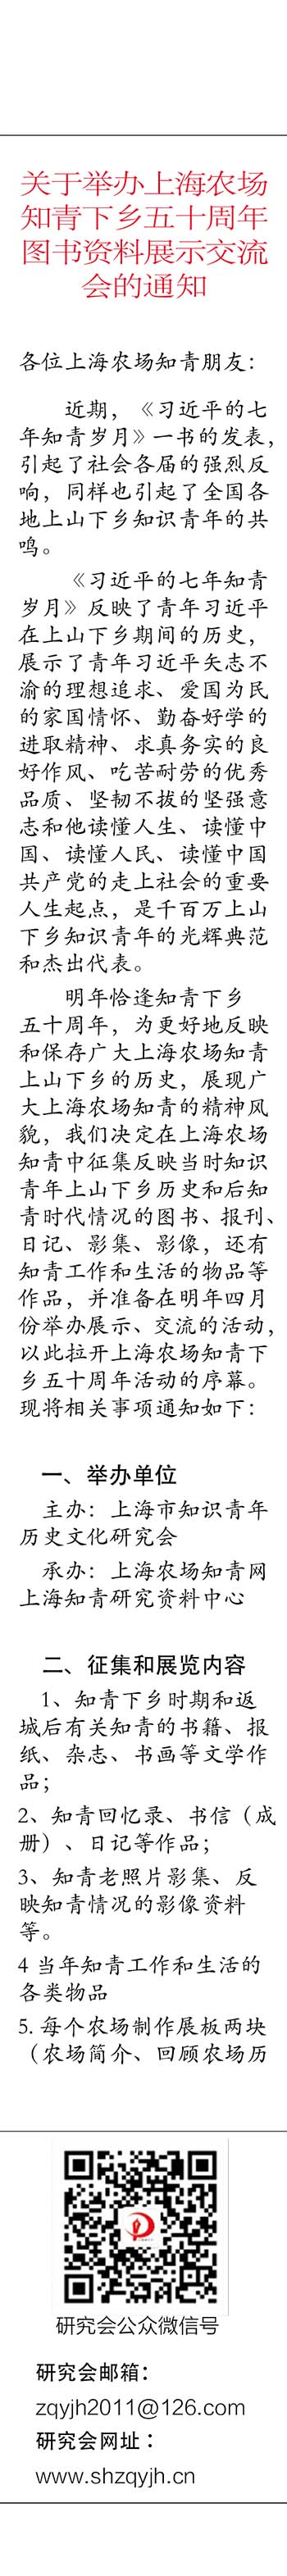 关于举办上海农场
知青下乡五十周年
图书资料展示交流
会的通知
各位上海农场知青朋友：
近期，《习近平的七
年知青岁月》一书的发表，
引起了社会各届的强烈反
响，同样也引起了全国各
地上山下乡知识青年的共
鸣。
《习近平的七年知青
岁月》反映了青年习近平
在上山下乡期间的历史，
展示了青年习近平矢志不
渝的理想追求、爱国为民
的家国情怀、勤奋好学的
进取精神、求真务实的良
好作风、吃苦耐劳的优秀
品质、坚韧不拔的坚强意
志和他读懂人生、读懂中
国、读懂人民、读懂中国
共产党的走上社会的重要
人生起点，是千百万上山
下乡知识青年的光辉典范
和杰出代表。
明年恰逢知青下乡
五十周年，为更好地反映
和保存广大上海农场知青
上山下乡的历史，展现广
大上海农场知青的精神风
貌，我们决定在上海农场
知青中征集反映当时知识
青年上山下乡历史和后知
青时代情况的图书、报刊、
日记、影集、影像，还有
知青工作和生活的物品等
作品，并准备在明年四月
份举办展示、交流的活动，
以此拉开上海农场知青下
乡五十周年活动的序幕。
现将相关事项通知如下：
一、举办单位
主办：上海市知识青年
历史文化研究会
承办：上海农场知青网
上海知青研究资料中心
二、征集和展览内容
1、知青下乡时期和返
城后有关知青的书籍、报
纸、杂志、书画等文学作
品；
2、知青回忆录、书信（成
册）、日记等作品；
3、知青老照片影集、反
映知青情况的影像资料
等。
4 当年知青工作和生活的
各类物品
5. 每个农场制作展板两块
（农场简介、回顾农场历
研究会公众微信号
研究会邮箱：
zqyjh2011@126.com
研究会网址：
www.shzqyjh.cn